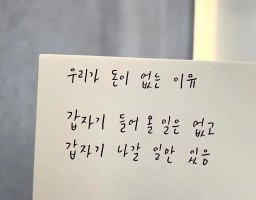 우리가 돈이 없는 이유
갑자기 들어올 일은 없고
갑자기 나갈 일만 있음